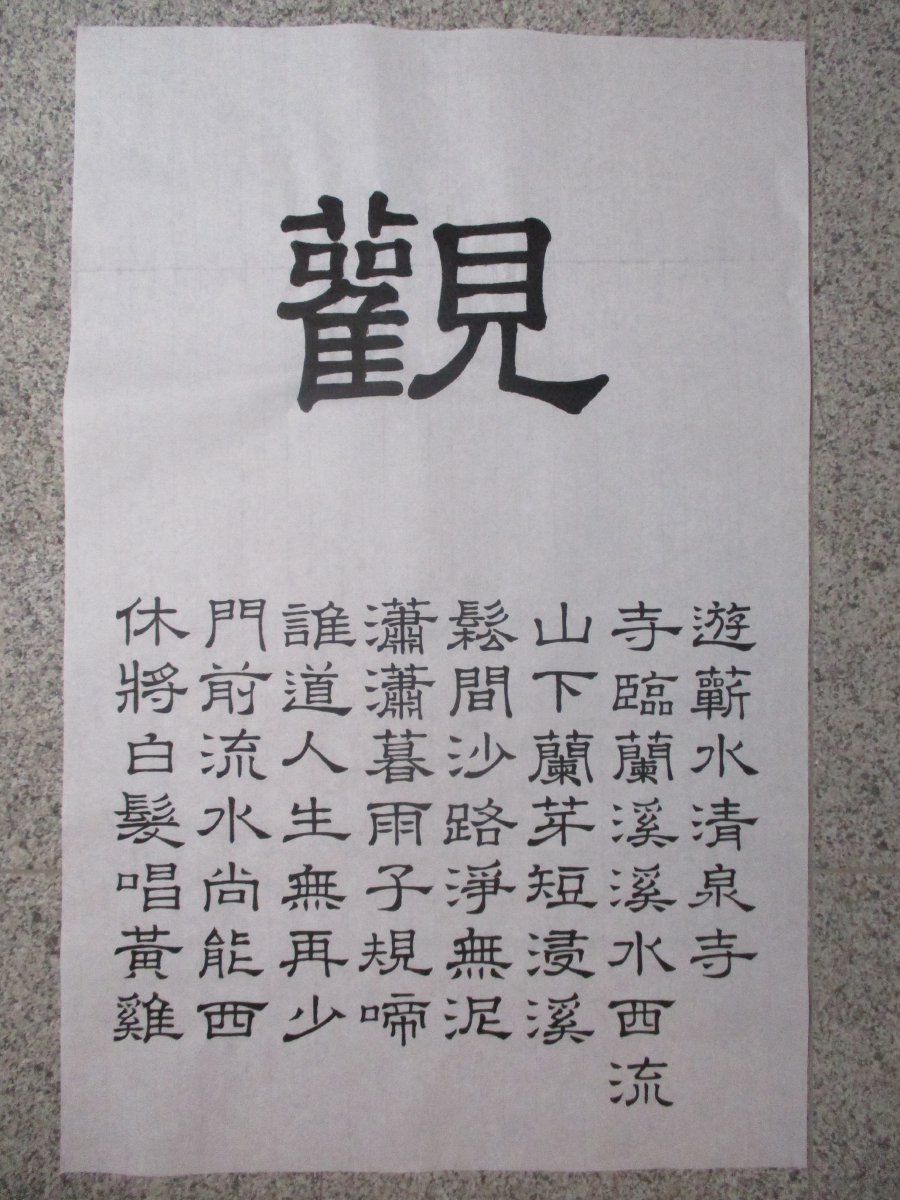 觀
遊蘄水清泉寺
寺臨蘭溪溪水西流
山下蘭芽短浸溪
鬆間沙路淨無泥
瀟瀟暮雨子規啼
誰道人生無再少
門前流水尚能西
休將白髮唱黃雞